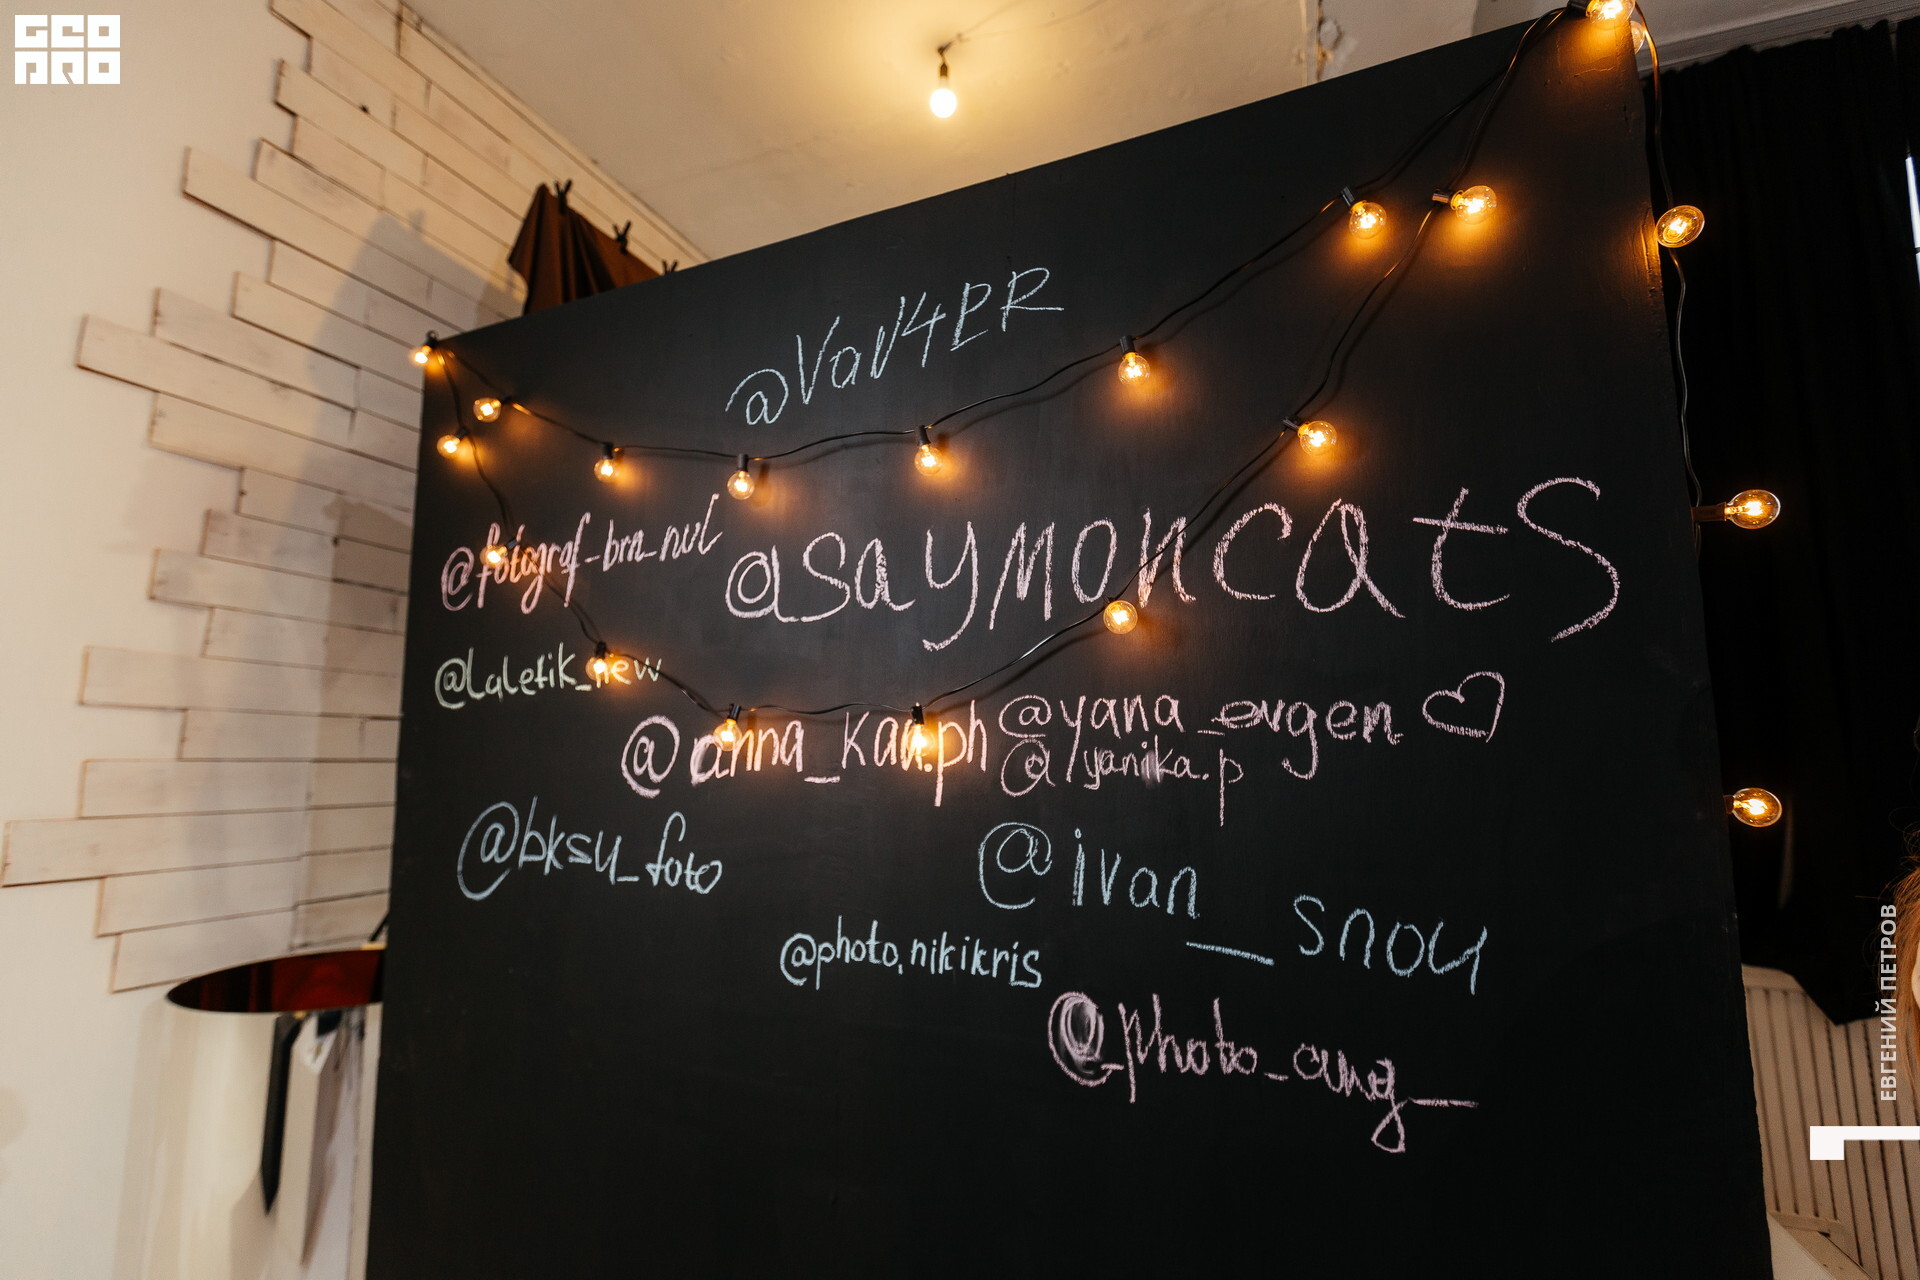 GEO
PRO
@Vav4PR
@fotograf_brn_nvl
@saymoncats
@laletik_new
@anna_kau.ph
@yana_evgen
@yanika.p
@bksu_foto
@ivan_snou
@photo.nikikris
@photo_ang_
ЕВГЕНИЙ ПЕТРОВ